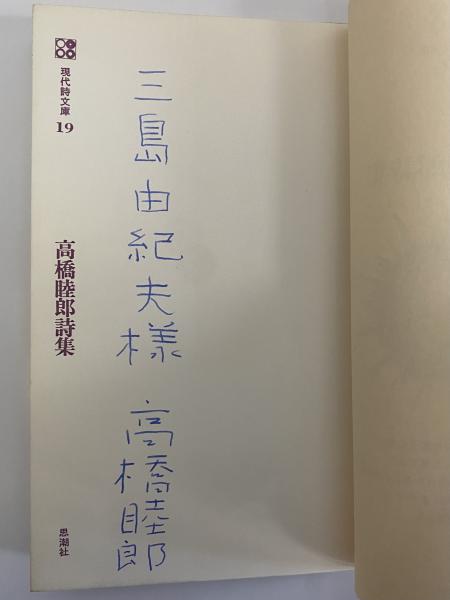 三島由紀夫様
高橋睦郎
現代詩文庫 19
高橋睦郎詩集
思潮社